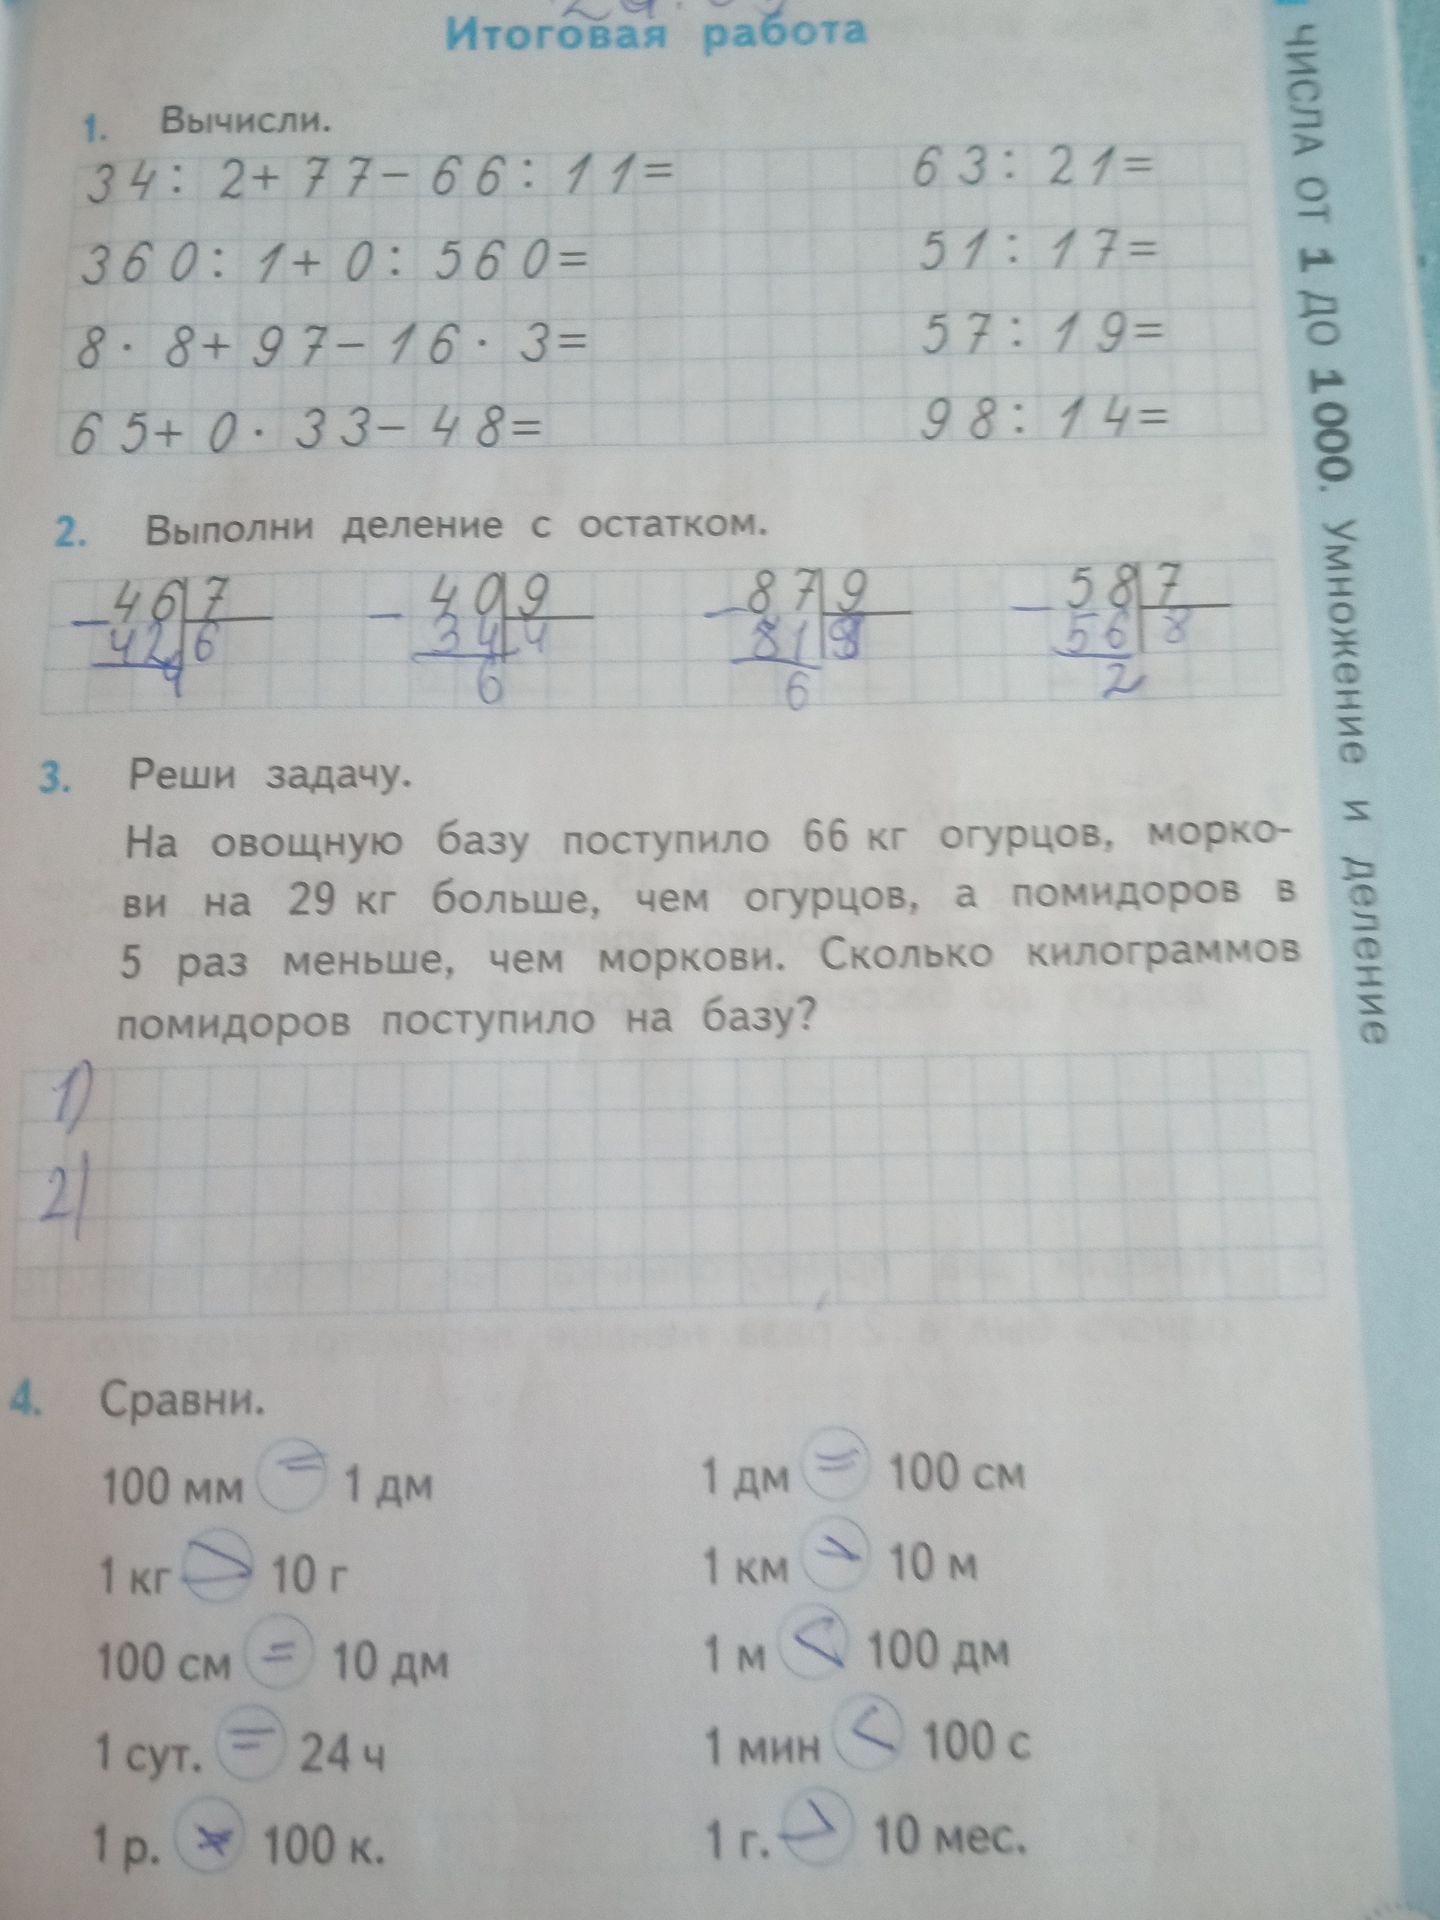 Итоговая работа
1. Вычисли.
34: 2+ 77− 66: 11= 63: 21=
360: 1+ 0: 560= 51: 17=
8· 8+ 97− 16· 3= 57: 19=
65+ 0· 33− 48= 98: 14=
2. Выполни деление с остатком.
−46 7 −40 9 −87 9 −58 7
42 6 34 4 81 56 8
4 6 6 2
3. Реши задачу.
На овощную базу поступило 66 кг огурцов, морко-
ви на 29 кг больше, чем огурцов, а помидоров в
5 раз меньше, чем моркови. Сколько килограммов
помидоров поступило на базу?
1)
2)
4. Сравни.
100 мм = 1 дм 1 дм = 100 см
1 кг > 10 г 1 км > 10 м
100 см = 10 дм 1 м < 100 дм
1 сут. = 24 ч 1 мин < 100 с
1 р. 100 к. 1 г. > 10 мес.
ЧИСЛА ОТ 1 ДО 1000. Умножение и деление